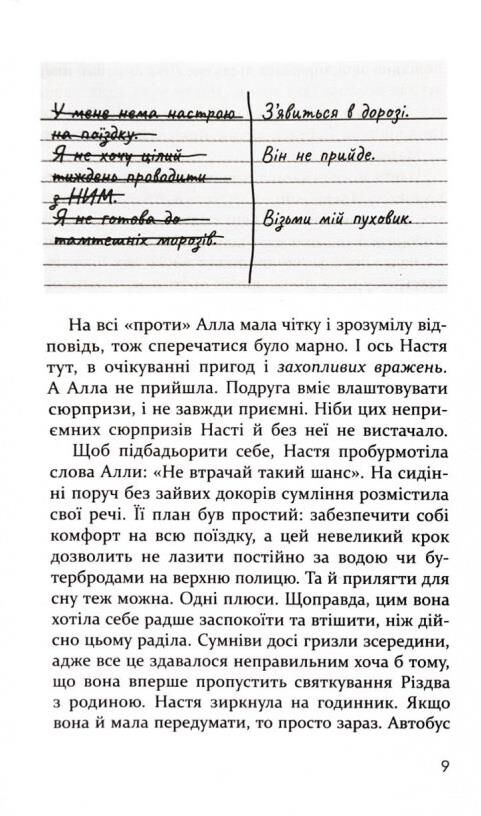 У мене нема настрою З'явиться в дорозі.
на поїздку.
Я не хочу цілий Він не прийде.
тиждень проводити
з НИМ.
Я не готова до Візьми мій пуховик.
тамтешніх морозів.
На всі «проти» Алла мала чітку і зрозумілу від-
повідь, тож сперечатися було марно. І ось Настя
тут, в очікуванні пригод і захопливих вражень.
А Алла не прийшла. Подруга вміє влаштовувати
сюрпризи, і не завжди приємні. Ніби цих непри-
ємних сюрпризів Насті й без неї не вистачало.
Щоб підбадьорити себе, Настя пробурмотіла
слова Алли: «Не втрачай такий шанс». На сидін-
ні поруч без зайвих докорів сумління розмістила
свої речі. Її план був простий: забезпечити собі
комфорт на всю поїздку, а цей невеликий крок
дозволить не лазити постійно за водою чи бу-
тербродами на верхню полицю. Та й прилягти для
сну теж можна. Одні плюси. Щоправда, цим вона
хотіла себе радше заспокоїти та втішити, ніж дій-
сно цьому раділа. Сумніви досі гризли зсередини,
адже все це здавалося неправильним хоча б тому,
що вона вперше пропустить святкування Різдва
з родиною. Настя зиркнула на годинник. Якщо
вона й мала передумати, то просто зараз. Автобус
9